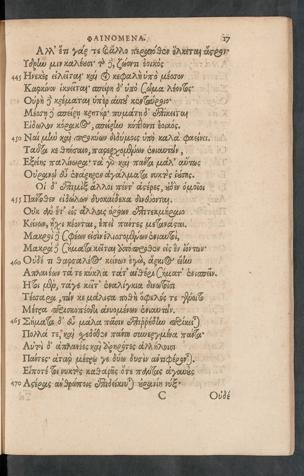 ΦΑΙΝΟΜΕΝΑ. 17
Ἀλλ' ἔτι γάρ τε καὶ ἄλλο περαιόθεν ἕλκεται ἄστρον·
Ὕδρην μιν καλέουσι· τὸ δὲ, ζώοντι ἐοικὸς
445 Ἠνεκὲς εἰλεῖται· καί οἱ κεφαλὴ ὑπὸ μέσσον
Καρκίνον ἱκνεῖται· σπείρη δ' ὑπὸ σῶμα λέοντος·
Οὐρὴ δὲ κρέμαται ὑπὲρ αὐτοῦ κενταύροιο·
Μέσση δὲ σπείρη κρητὴρ· πυμάτη δ' ἐπίκειται
Εἴδωλον κόρακος, σπείρην κόπτοντι ἐοικός.
450 Ναὶ μὴν καὶ προκύων διδύμοις ὑπὸ καλὰ φαείνει.
Ταῦτά κε θηήσαιο, παρερχομένων ἐνιαυτῶν,
Ἑξείης παλίνωρα· τὰ γὰρ καὶ πάντα μάλ' αὕτως
Οὐρανῷ εὖ ἐνάρηρεν ἀγάλματα νυκτὸς ἰούσης.
Οἱ δ' ἐπιμὶξ ἄλλοι πέντ' ἀστέρες, οὐδὲν ὁμοῖοι
455 Πάντοθεν εἰδώλων δυοκαίδεκα δινεύονται.
Οὐκ ἂν ἔτ' εἰς ἄλλους ὁρόων ἐπιτεκμήραιο
Κείνων, ἧχι κέονται, ἐπεὶ πάντες μετανάσται.
Μακροὶ δὲ σφέων εἰσὶν ἑλισσομένων ἐνιαυτοί,
Μακρὰ δὲ σήματα κεῖται ἀπόπροθεν εἰς ἓν ἰόντων·
460 Οὐδέ τι θαρσαλέος κείνων ἐγώ, ἄρκιος εἴην
Ἀπλανέων τά τε κύκλα τά τ' αἰθέρι σήματ' ἐνισπεῖν.
Ἤτοι μὲν, τάγε κεῖτ' ἐναλίγκια δινωτοῖσι
Τέσσαρα, τῶν κε μάλιστα ποθὴ ὄφελός τε γένοιτο
Μέτρα περισκοπέοντι ἀνομένων ἐνιαυτῶν.
465 Σήματα δ' εὖ μάλα πᾶσιν ἐπιρρήδην περίκειται
Πολλά τε, καὶ σχεδόθεν πάντη συνεεργμένα πάντα·
Αὐτοὶ δ' ἀπλανέες καὶ ἀρηρότες ἀλλήλοισι
Πάντες· ἀτὰρ μέτρῳ γε δύω δυσὶν ἀντιφέρονται.
Εἴποτέ τοι νυκτὸς καθαρῆς ὅτε πάντας ἀγαυοὺς
470 Ἀστέρας ἀνθρώποις ἐπιδείκνυται οὐρανίη νύξ·
C Οὐδέ